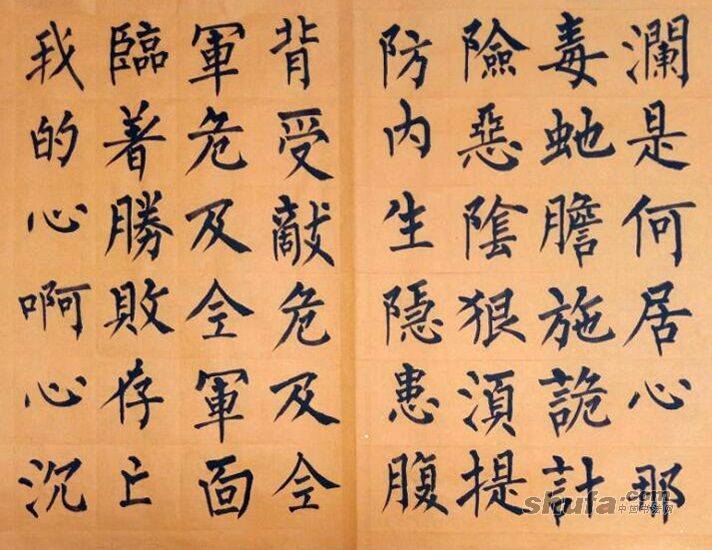 瀾是何居心那
毒虵膽施詭計
險惡陰狠須提
防内生隱患腹
背受敵危及全
軍危及全軍面
臨著勝敗存亡
我的心啊心沉
shufa.com
中国书法网